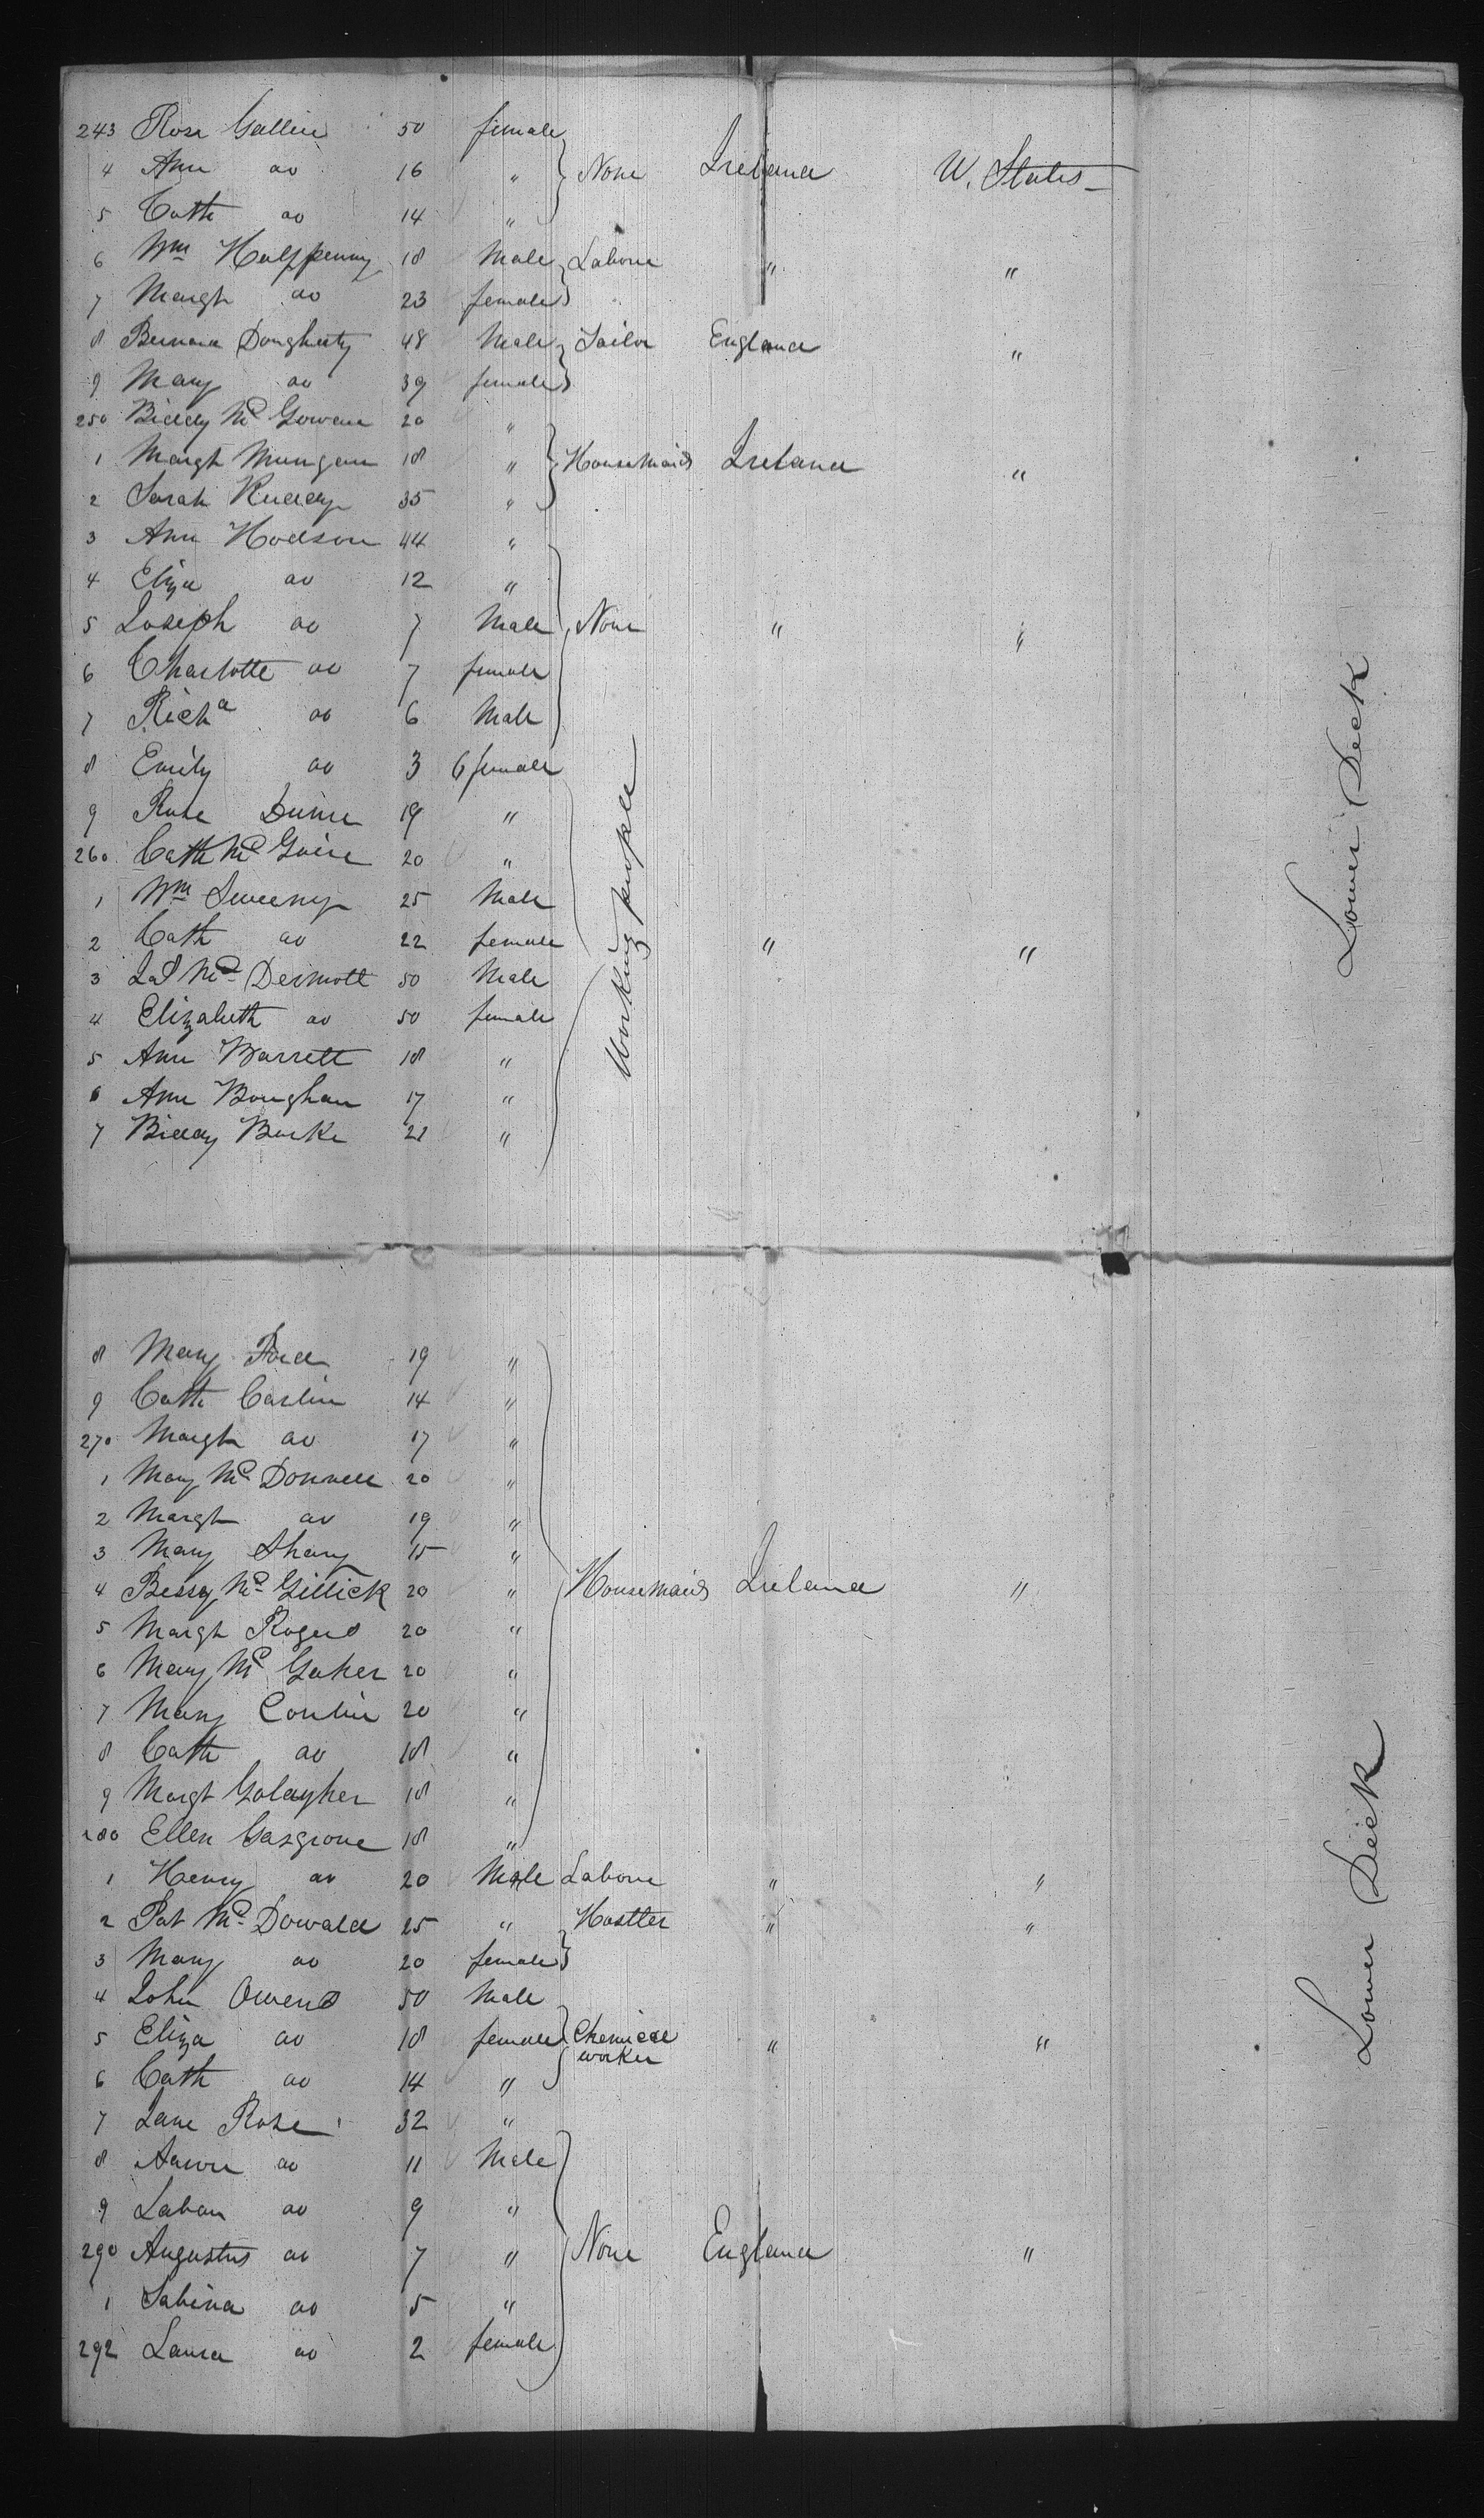 243 Rose Gallin 50 female
4 Ann do 16 " None Ireland U. States
5 Cath do 14 "
6 Wm Halfpenny 18 Male Labour " "
7 Margt do 23 female
8 Bernard Dougherty 48 Male Tailor England "
9 Mary do 39 female
250 Biddy Mc Gowan 20 "
1 Margt Mungan 18 " Housemaids Ireland "
2 Sarah Ruddy 35 "
3 Ann Hodson 44 "
4 Eliza do 12 "
5 Joseph do 7 Male None " "
6 Charlotte do 7 female
7 Richd do 6 Male
8 Emily do 3 6 female
9 Rose Dunn 19 "
260 Cath Mc Guire 20 "
1 Wm Sweeny 25 Male
2 Cath do 22 female Working people " "
3 Mc Dermott 50 Male
4 Elizabeth do 50 female
5 Ann Barrett 18 "
6 Ann Boughan 17 "
7 Biddy Burke 21 "
Lower Deck
8 Mary Ford 19 "
9 Cath Carlin 14 "
270 Margt do 17 "
1 Mary Mc Donnell 20 "
2 Margt do 19 "
3 Mary 15 "
4 Bessy Mc Gillick 20 " Housemaids Ireland "
5 Margt Rogers 20 "
6 Mary Mc Gaher 20 "
7 Mary Conlin 20 "
8 Cath do 18 "
9 Margt Golagher 18 "
280 Ellen Gasgrove 18 "
1 Henry do 20 Male Labour " "
2 Pat Mc Donald 25 " Hostler " "
3 Mary do 20 female
4 John Owens 50 Male
5 Eliza do 18 female Chemical worker " "
6 Cath do 14 "
7 Jane Rose 32 "
8 do 11 Male
9 Laban do 9 "
290 Augustus do 7 " None England "
1 Sabina do 5 "
292 Laura do 2 female
Lower Deck